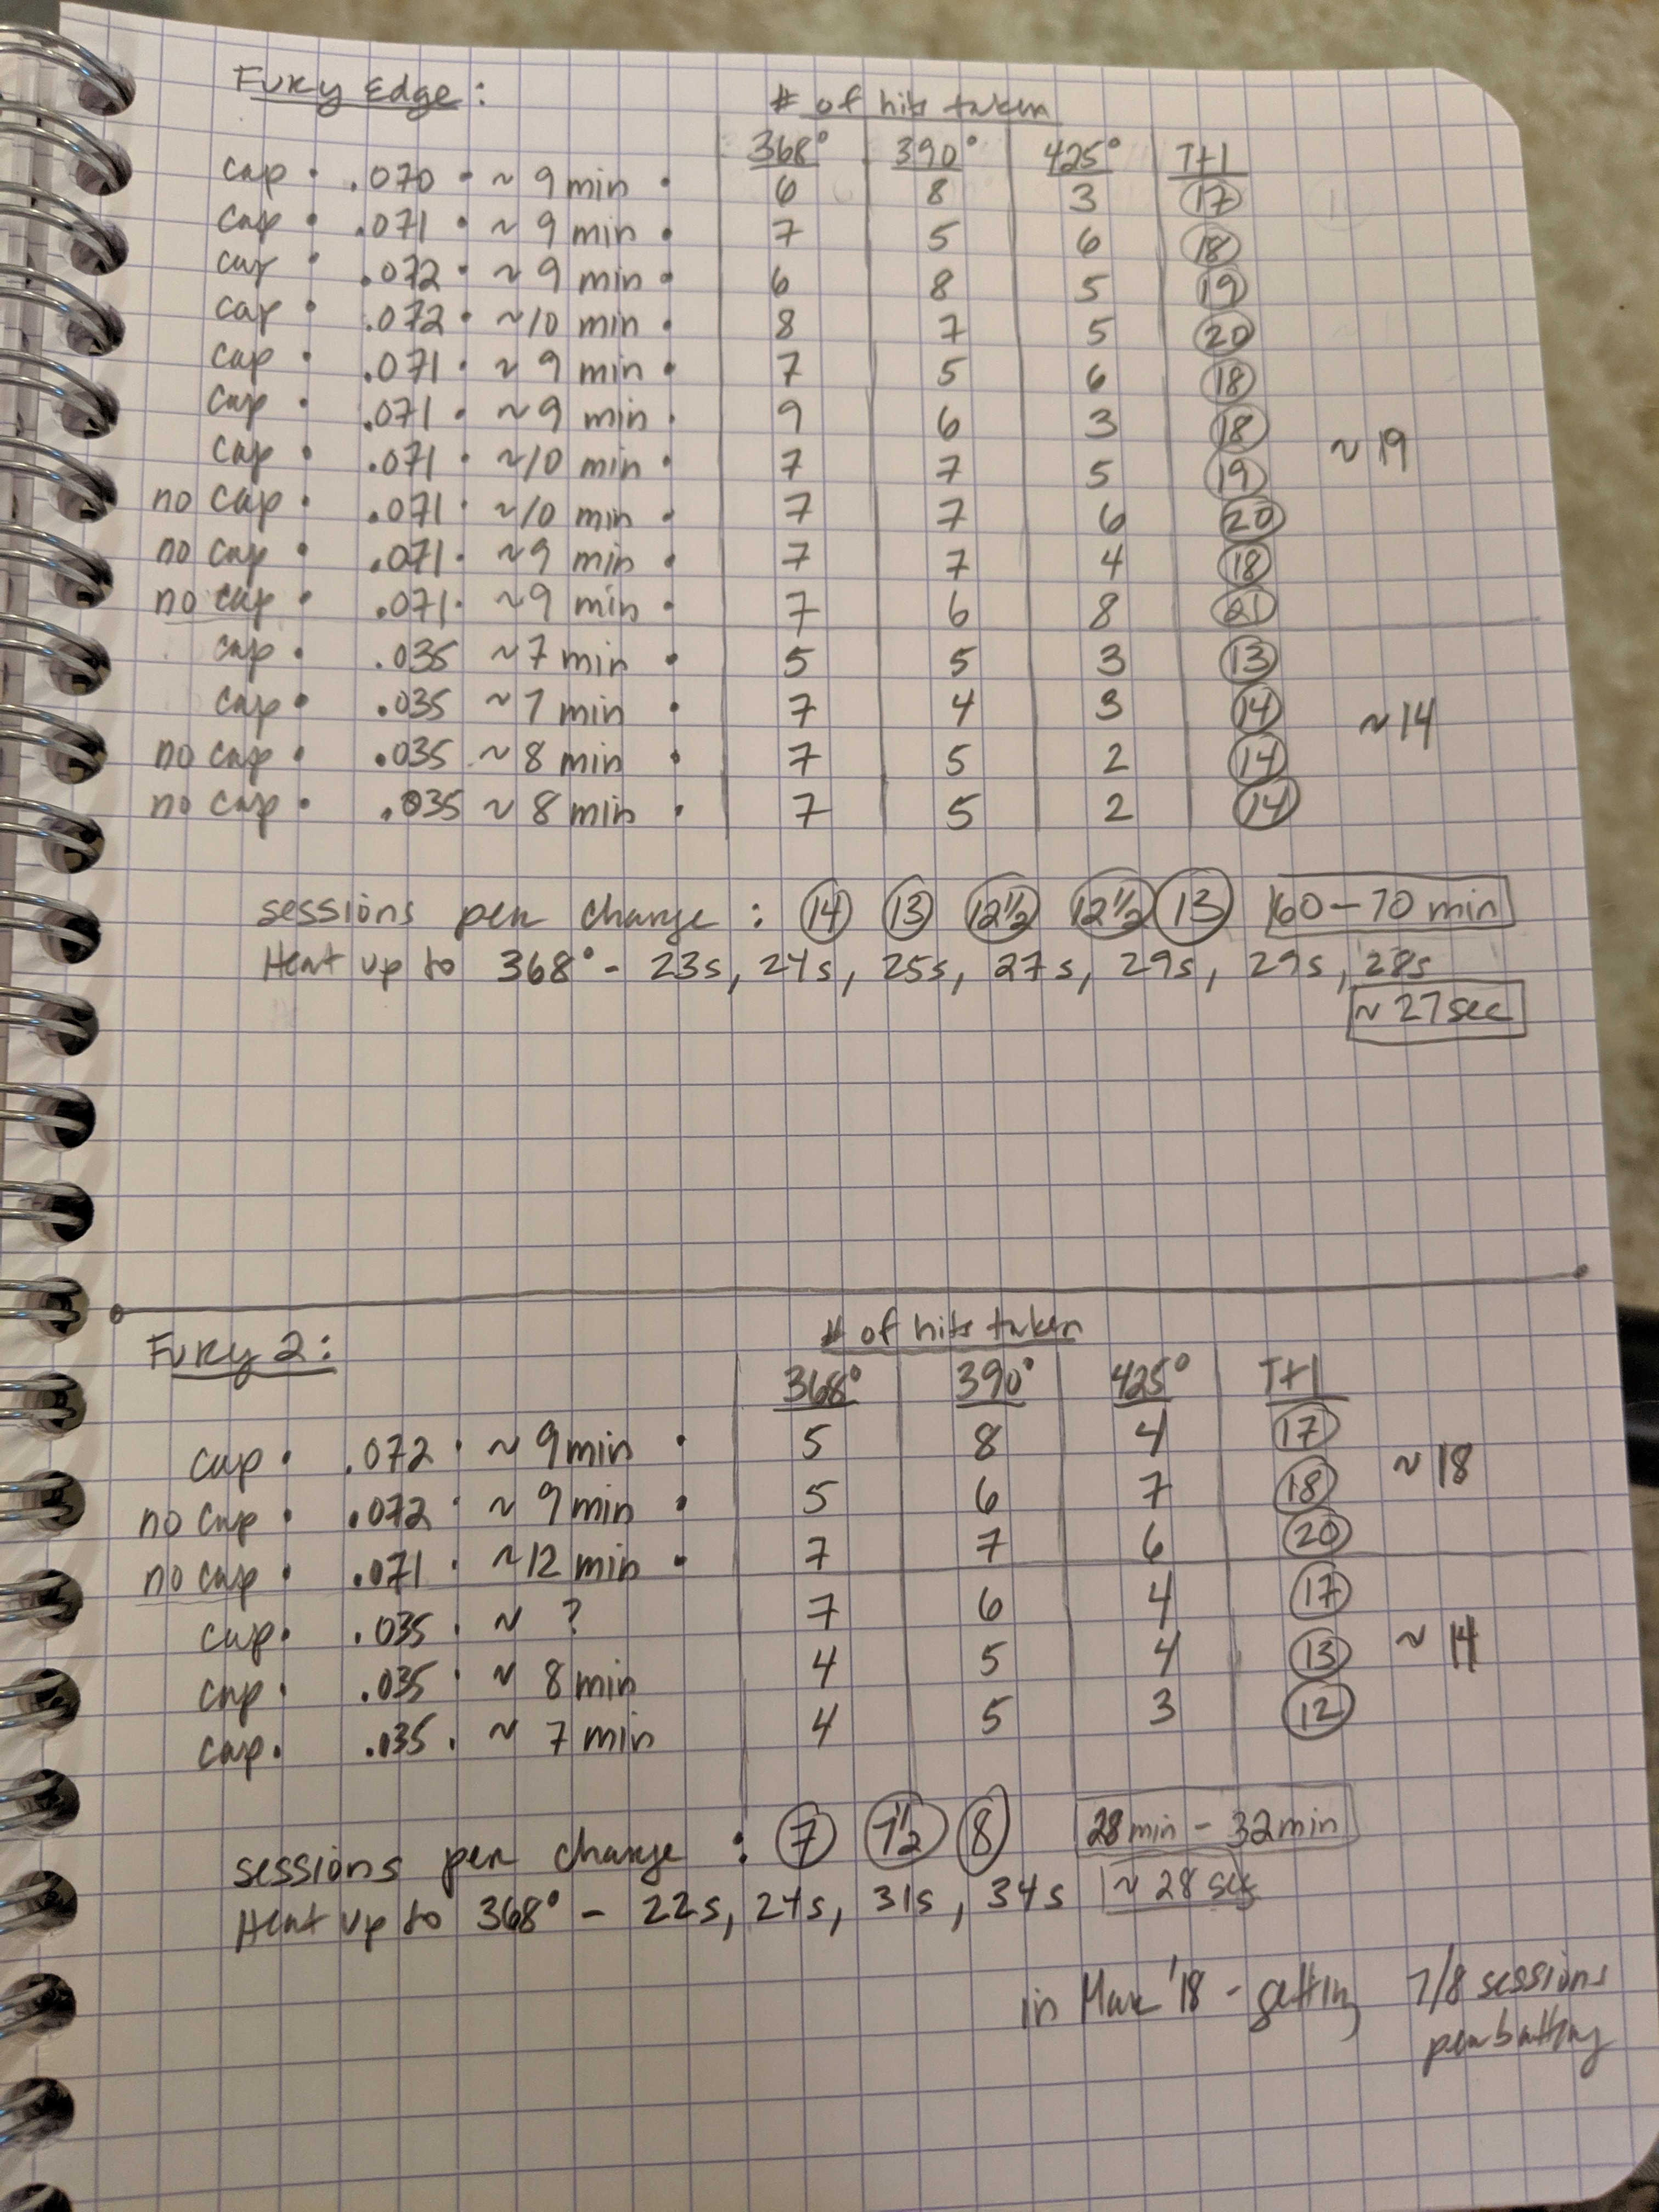 Fury Edge:
# of hits taken
368° 390° 425° Ttl
cap · .070 · ~ 9 min · 6 8 3 17
cap · .071 · ~ 9 min · 7 5 6 18
cap · .072 · ~ 9 min · 6 8 5 19
cap · .072 · ~10 min · 8 7 5 20
cap · .071 · ~ 9 min · 7 5 6 18
cap · .071 · ~9 min · 9 6 3 18
cap · .071 · ~10 min · 7 7 5 19
~ 19
no cap · .071 · ~10 min · 7 7 6 20
no cap · .071 · ~9 min · 7 7 4 18
no cap · .071 · ~9 min · 7 6 8 21
cap · .035 ~7 min · 5 5 3 13
cap · .035 ~7 min · 7 4 3 14
~14
no cap · .035 ~ 8 min · 7 5 2 14
no cap · .035 ~ 8 min · 7 5 2 14
sessions per charge : 14 13 12 1/2 12 1/2 13 60 - 70 min
Heat up to 368° - 23s, 24s, 25s, 27s, 29s, 29s, 28s
~ 27 sec
Fury 2:
# of hits taken
368° 390° 425° Ttl
cap · .072 · ~ 9 min · 5 8 4 17
~ 18
no cap · .072 · ~ 9 min · 5 6 7 18
no cap · .071 · ~12 min · 7 7 6 20
cap · .035 · ~ ? 7 6 4 17
cap · .035 · ~ 8 min 4 5 4 13
~ 14
cap · .035 · ~ 7 min 4 5 3 12
sessions per charge : 7 7 1/2 8 28 min - 32 min
Heat up to 368° - 22s, 24s, 31s, 34s ~ 28 sec
in Mar '18 - getting 7/8 sessions
per battery